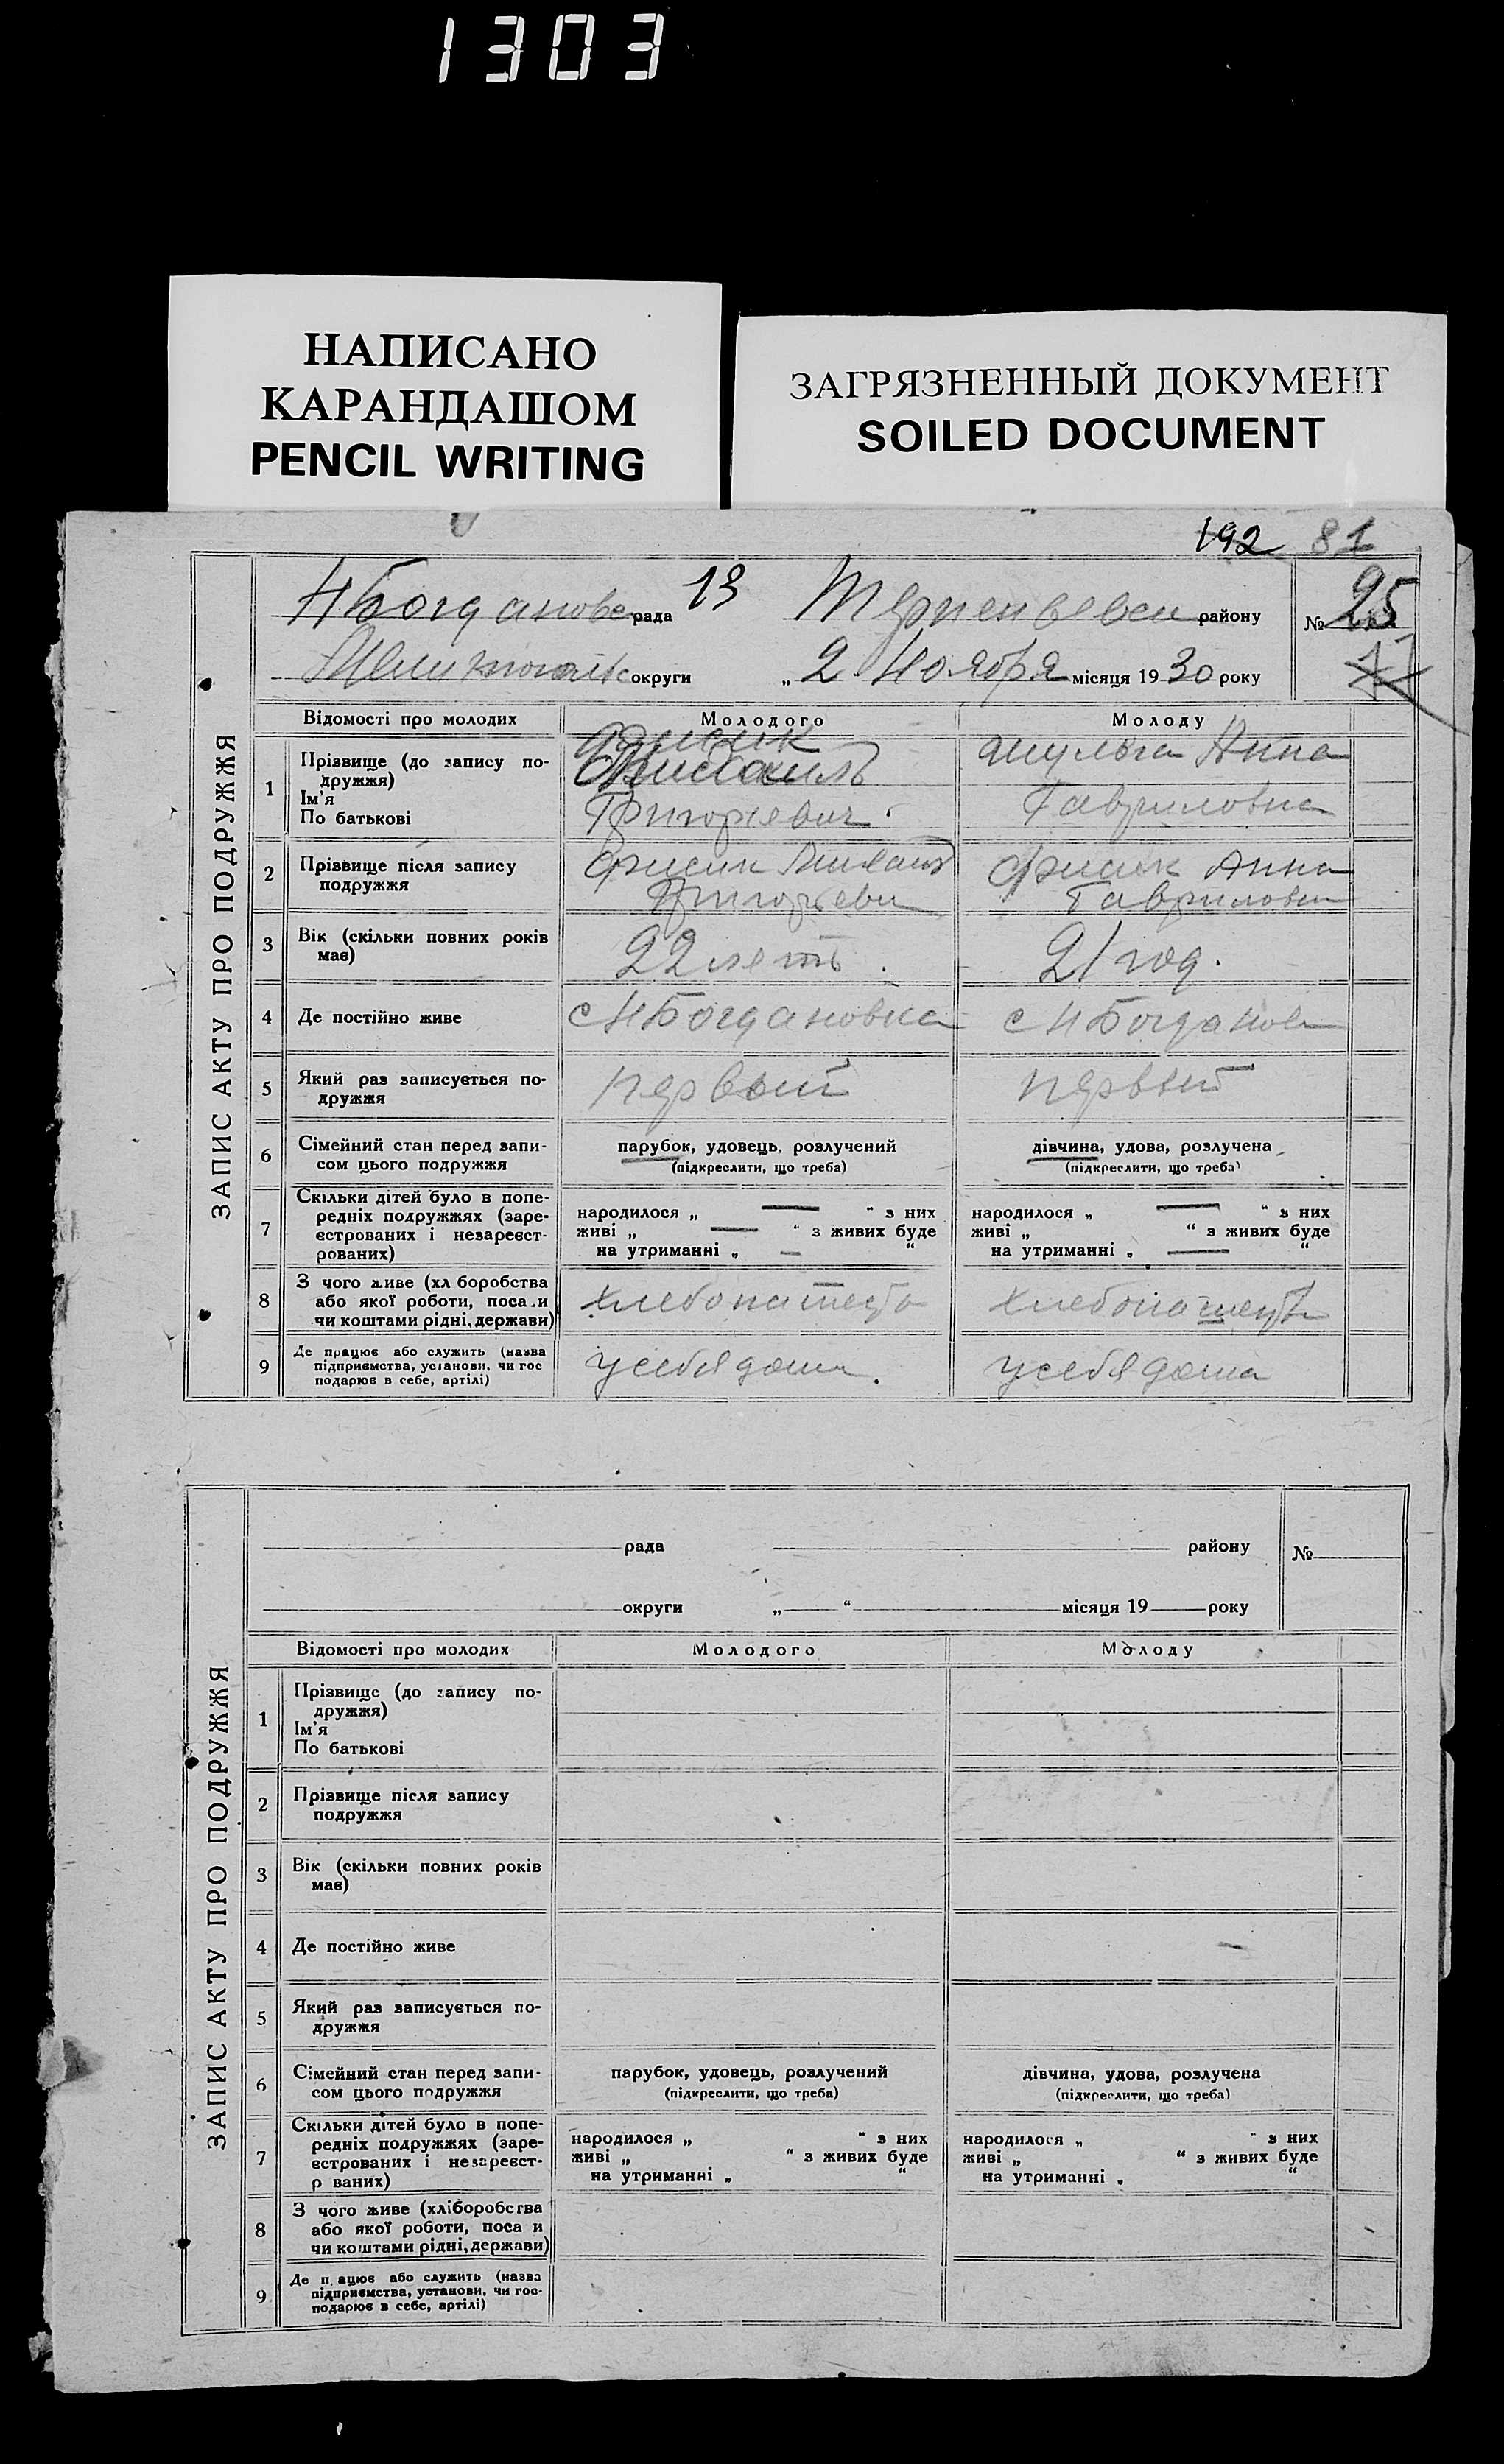 1303
НАПИСАНО
КАРАНДАШОМ
PENCIL WRITING
ЗАГРЯЗНЕННЫЙ ДОКУМЕНТ
SOILED DOCUMENT
192 81
ЗАПИС АКТУ ПРО ПОДРУЖЖЯ
рада 13 району № 25
округи „ 2 Ноября місяця 1930 року
Відомості про молодих Молодого Молоду
1 Прізвище (до запису по-
дружжя)
Ім'я
По батькові
Фисик
Михаилъ
Григориевич
Шульга Анна
Гавриловна
2 Прізвище після запису
подружжя
Фисик Михаил
Григориевич
Фисик Анна
Гавриловна
3 Вік (скільки повних років
має)
22 летъ.
21 год.
4 Де постійно живе с Н Богдановка с Н Богданов
5 Який раз записується по-
дружжя
первый
первый
6 Сімейний стан перед запи-
сом цього подружжя
парубок, удовець, розлучений
(підкреслити, що треба)
дівчина, удова, розлучена
(підкреслити, що треба)
7 Скільки дітей було в попе-
редніх подружжях (заре-
єстрованих і незареєст-
рованих)
народилося „ — “ з них
живі „ — “ з живих буде
на утриманні „ — “
народилося „ — “ з них
живі „ “ з живих буде
на утриманні „ — “
8 З чого живе (хл боробства
або якої роботи, поса и
чи коштами рідні, держави)
хлебопашество
хлебопашество
9 Де працює або служить (назва
підприємства, установи, чи гос
подарює в себе, артілі)
у себя дома.
у себя дома
ЗАПИС АКТУ ПРО ПОДРУЖЖЯ
рада району №
округи „ “ місяця 19 року
Відомості про молодих Молодого Молоду
1 Прізвище (до запису по-
дружжя)
Ім'я
По батькові
2 Прізвище після запису
подружжя
3 Вік (скільки повних років
має)
4 Де постійно живе
5 Який раз записується по-
дружжя
6 Сімейний стан перед запи-
сом цього подружжя
парубок, удовець, розлучений
(підкреслити, що треба)
дівчина, удова, розлучена
(підкреслити, що треба)
7 Скільки дітей було в попе-
редніх подружжях (заре-
єстрованих і незареєст-
р ваних)
народилося „ “ з них
живі „ “ з живих буде
на утриманні „ “
народилося „ “ з них
живі „ “ з живих буде
на утриманні „ “
8 З чого живе (хліборобства
або якої роботи, поса и
чи коштами рідні, держави)
9 Де п ацює або служить (назва
підприємства, установи, чи гос-
подарює в себе, артілі)